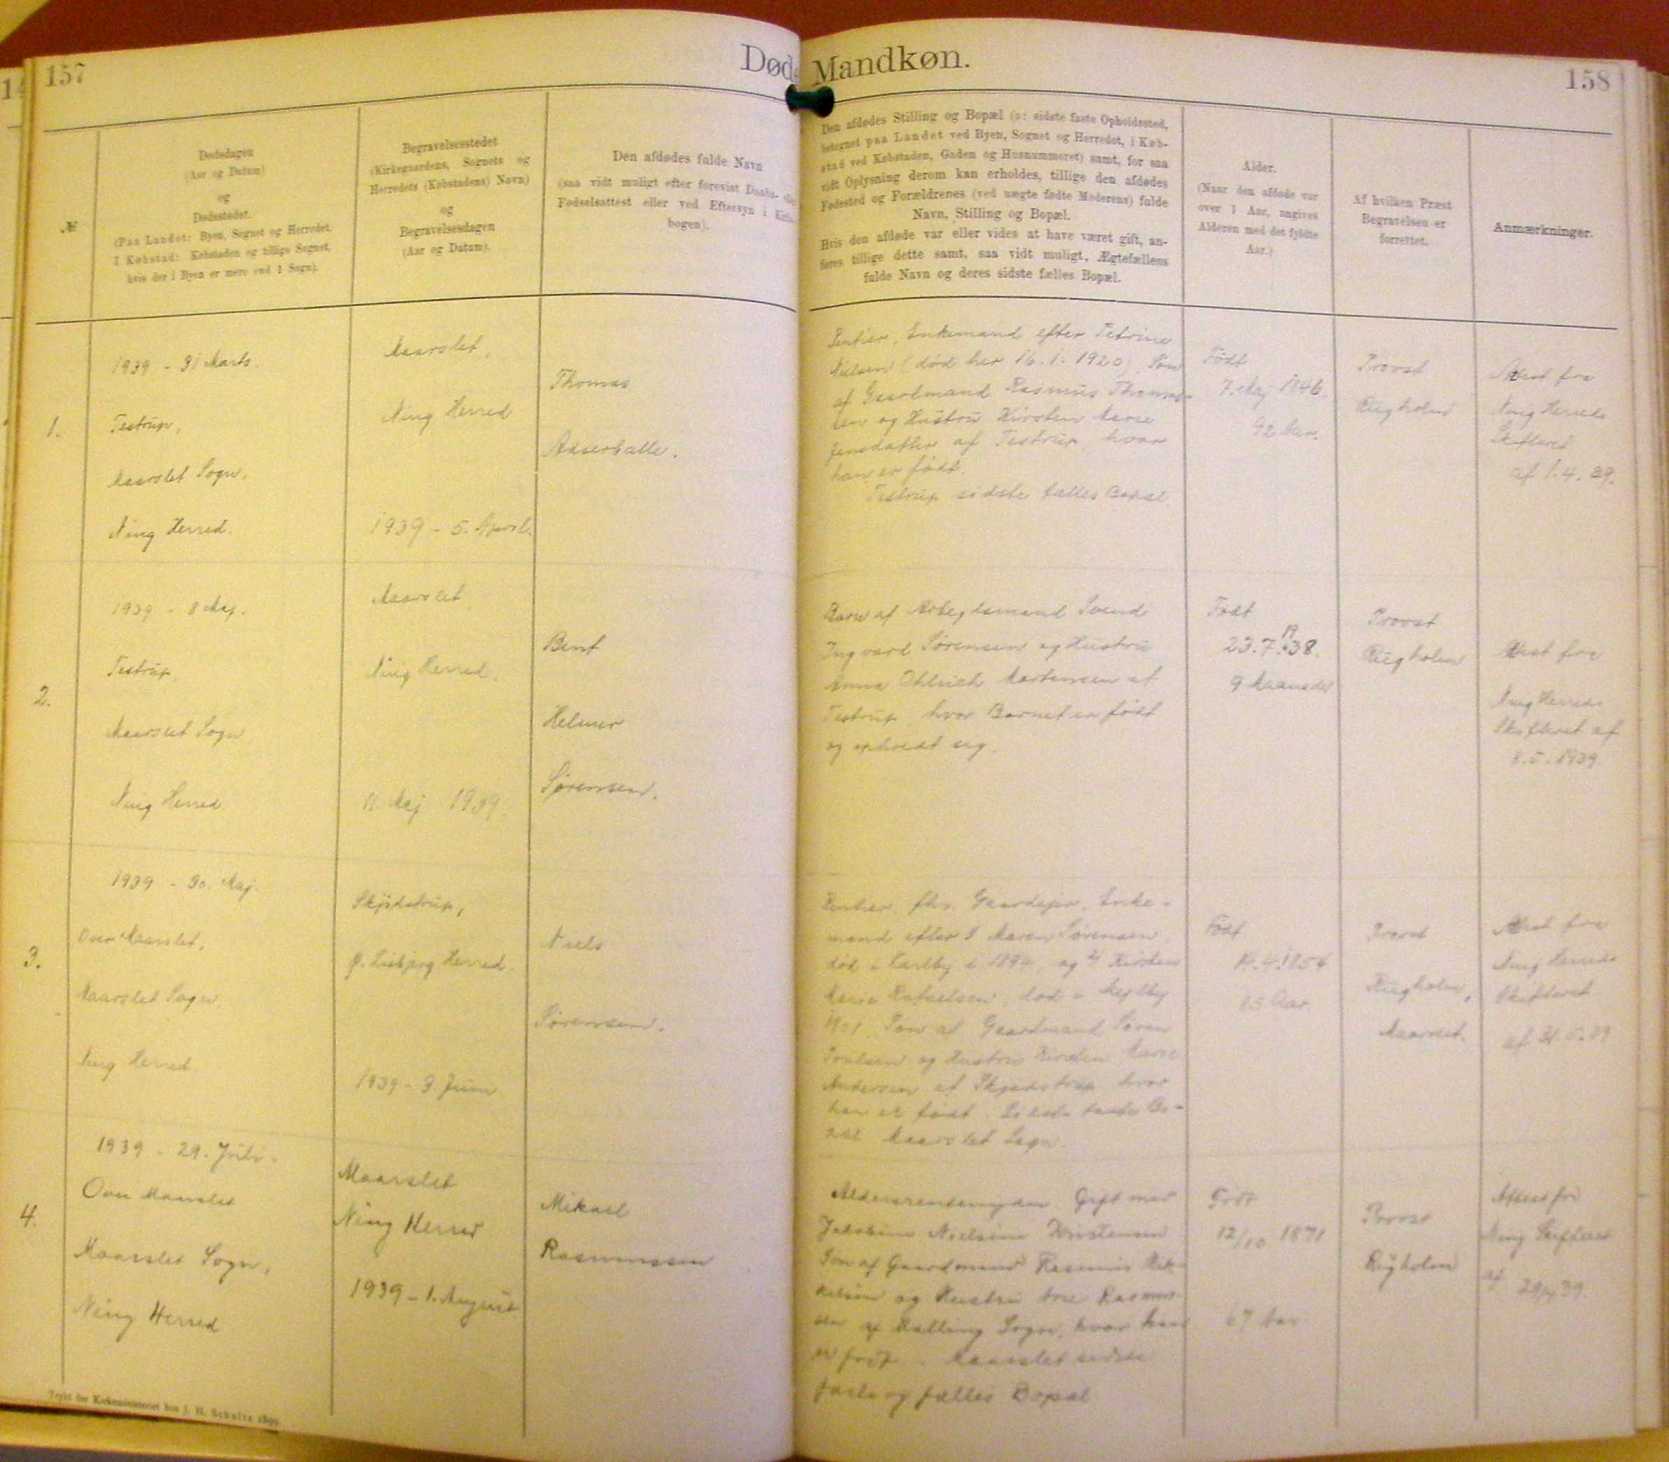 157
Døde
Mandkøn.
158
№
Dødsdagen
(Aar og Datum)
og
Dødsstedet.
(Paa Landet: Byen, Sognet og Herredet.
I Købstad: Købstaden og tillige Sognet,
hvis der i Byen er mere end 1 Sogn).
Begravelsesstedet
(Kirkegaardens, Sognets og
Herredets (Købstadens) Navn)
og
Begravelsesdagen
(Aar og Datum).
Den afdødes fulde Navn
(saa vidt muligt efter forevist Daabs-
Fødselsattest eller ved Eftersyn i
bogen).
Den afdødes Stilling og Bopæl (ɔ: sidste faste Opholdssted,
betegnet paa Landet ved Byen, Sognet og Herredet, i Køb-
stad ved Købstaden, Gaden og Husnummeret) samt, for saa
vidt Oplysning derom kan erholdes, tillige den afdødes
Fødested og Forældrenes (ved uægte fødte Moderens) fulde
Navn, Stilling og Bopæl.
Hvis den afdøde var eller vides at have været gift, an-
føres tillige dette samt, saa vidt muligt, Ægtefællens
fulde Navn og deres sidste fælles Bopæl.
Alder.
(Naar den afdøde var
over 1 Aar, angives
Alderen med det fyldte
Aar.)
Af hvilken Præst
Begravelsen er
forrettet.
Anmærkninger.
1.
1939 - 31 Marts.
Testrup,
Maarslet Sogn,
Ning Herred.
Maarslet,
Ning Herred
1939 - 5. April.
Thomas
Adserballe.
Rentier, Enkemand efter Petrine
Nielsen (død her 16.1.1920), Søn
af Gaardmand Rasmus Thomas-
sen og Hustru Kirsten Marie
Jensdatter af Testrup, hvor
han er født.
Testrup sidste fælles Bopæl.
Født
7. Maj 1846.
92 Aar.
Provst
Rügholm
Attest fra
Ning Herreds
Skifteret
af 1.4.39.
2.
1939 - 8 Maj.
Testrup
Maarslet Sogn
Ning Herred
Maarslet
Ning Herred.
11. Maj 1939.
Bent
Helmer
Sørensen.
Barn af Arbejdsmand Svend
Ingvard Sørensen og Hustru
Anna Mortensen af
Testrup, hvor Barnet er født
og opholdt sig.
Født
23.7.1938.
9 Maaneder
Provst
Rügholm
Attest fra
Ning Herreds
Skifteret af
8.5.1939
3.
1939 - 30. Maj.
Over Maarslet,
Maarslet Sogn
Ning Herred
Skjødstrup,
Ø. Lisbjerg Herred.
1939 - 3. Juni
Niels
Sørensen.
Rentier, fhv. Gaardejer, Enke-
mand efter 1 Maren Sørensen,
død i Karlby i 1894, og 2) Kirsten
Marie Rafaelsen, død i Mejlby
1901. Søn af Gaardmand Søren
Poulsen og Hustru Kirsten Marie
Andersen af Skjødstrup, hvor
han er født. Sidste faste Bo-
pæl Maarslet Sogn.
Født
14.4.1854
85 Aar.
Provst
Rügholm,
Maarslet.
Attest fra
Ning Herreds
Skifteret
af 31.5.39
4.
1939 - 29. Juli.
Over Maarslet
Maarslet Sogn,
Ning Herred
Maarslet
Ning Herred
1939 - 1. August
Mikael
Rasmussen
Aldersrentenyder. Gift med
Jakobine Nielsine Kristensen
Søn af Gaardmand Rasmus Mik-
kelsen og Hustru Ane Rasmus-
sen af Malling Sogn, hvor han
er født. Maarslet sidste
faste og fælles Bopæl
Født
12/10 1871
67 Aar
Provst
Rügholm
Attest fra
Ning Skifteret
af 29/7 39.
Trykt for Kirkeministeriet hos J. H. Schultz